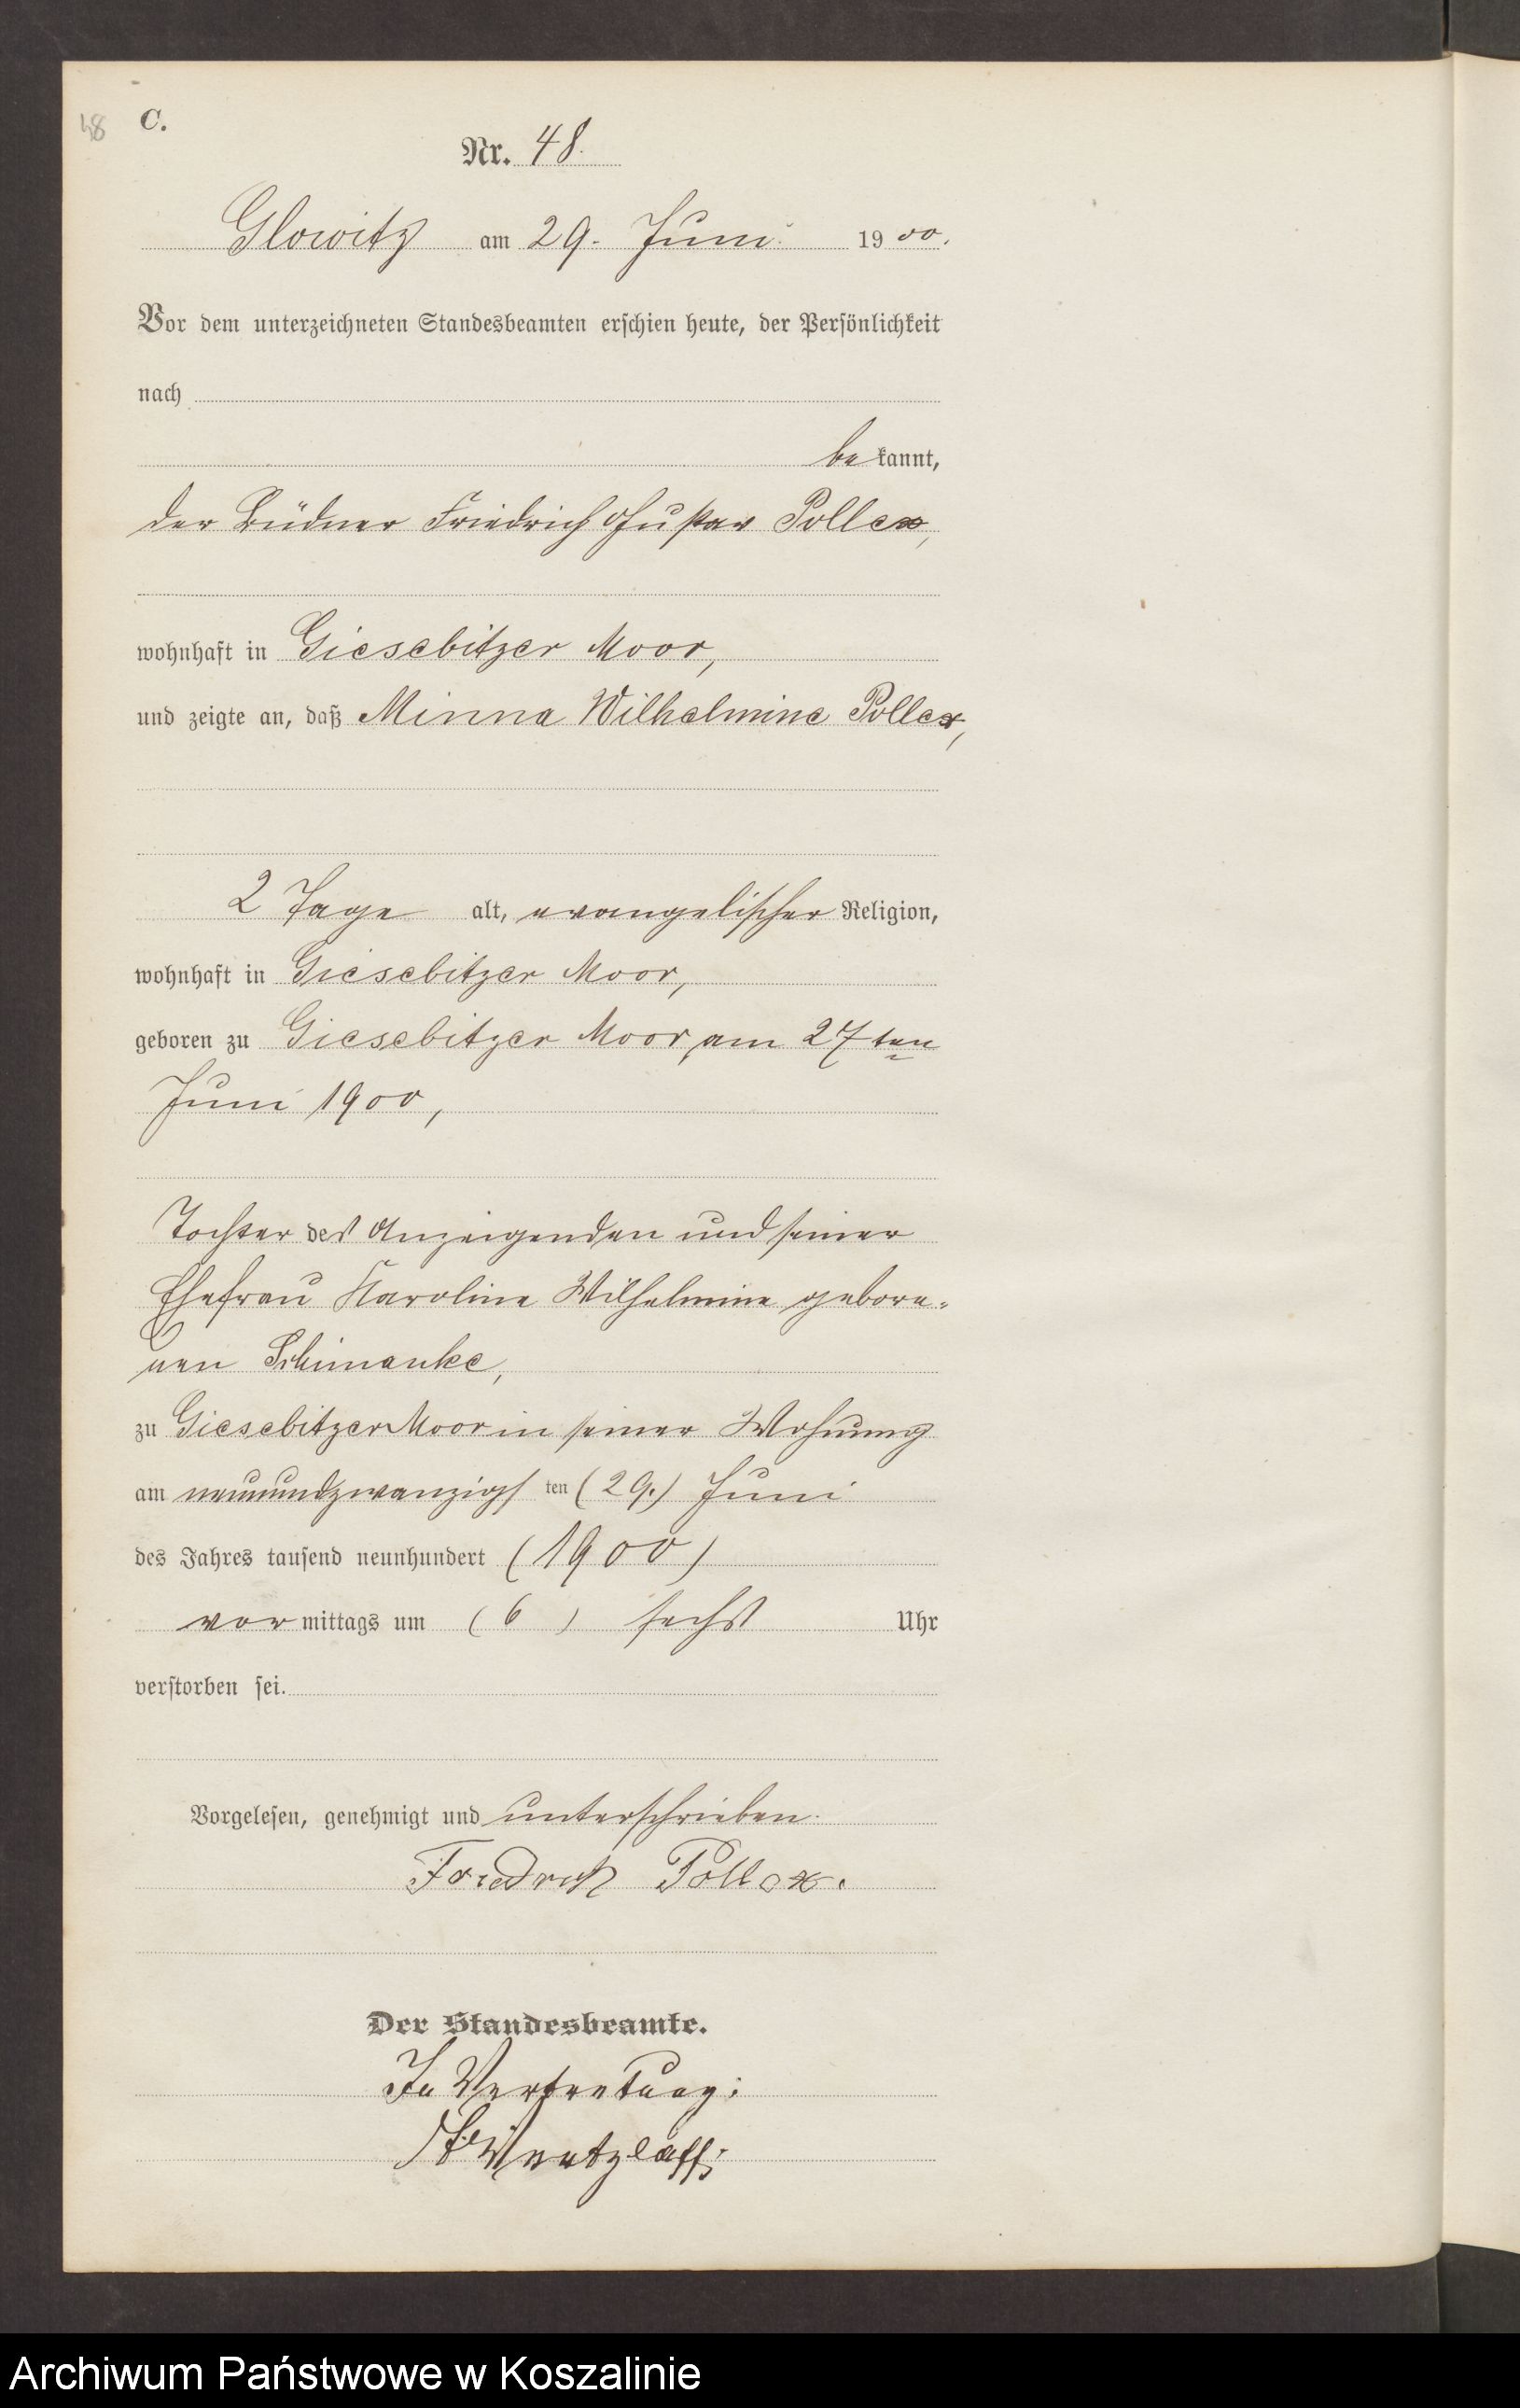 48
C.
Nr. 48.
Glowitz am 29. Juni 1900.
Vor dem unterzeichneten Standesbeamten erschien heute, der Persönlichkeit
nach
bekannt,
der Büdner Friedrich Gustav Pollex,
wohnhaft in Giesebitzer Moor,
und zeigte an, daß Minna Wilhelmine Pollex,
2 Tage alt, evangelischer Religion,
wohnhaft in Giesebitzer Moor,
geboren zu Giesebitzer Moor, am 27ten
Juni 1900,
Tochter des Anzeigenden und seiner
Ehefrau Karoline Wilhelmine gebore-
nen Schimanke,
zu Giesebitzer Moor in seiner Wohnung
am neunundzwanzigsten (29.) Juni
des Jahres tausend neunhundert (1900)
vormittags um (6) sechs Uhr
verstorben sei.
Vorgelesen, genehmigt und unterschrieben.
Friedrich Pollex.
Der Standesbeamte.
In Vertretung:
Wentzlaff.
Archiwum Państwowe w Koszalinie